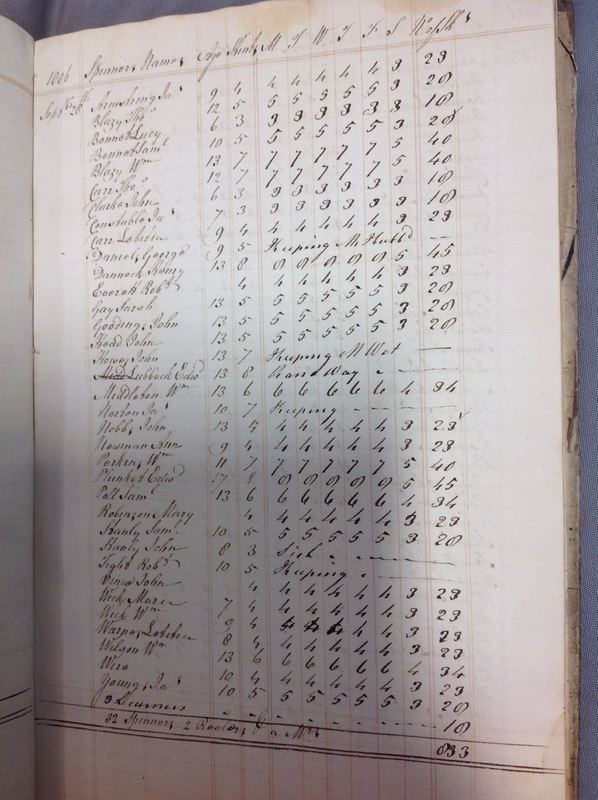 1806 Spinners Names Age Stint M T W T F S No of Sks
Septbr 20th Armstrong Jas 9 4 4 4 4 4 4 3 23
Blazy Thos 12 5 5 5 5 5 5 3 28
Bonnet Lucy 6 3 3 3 3 3 3 3 18
Bonnet Saml 10 5 5 5 5 5 5 3 28
Blazy Wm 13 7 7 7 7 7 7 5 40
Carr Thos 12 7 7 7 7 7 7 5 40
Clarke John 6 3 3 3 3 3 3 3 18
Constable Jas 7 3 3 3 3 3 3 3 18
Carr Lobitia 9 4 4 4 4 4 4 3 23
Daniel George 9 5 Keeping Mr Hubbd —
Dannock Henry 13 8 8 8 8 8 8 5 45
Everett Robt 4 4 4 4 4 4 3 23
Gay Sarah 13 5 5 5 5 5 5 3 28
Gooding John 13 5 5 5 5 5 5 3 28
Head John 13 5 5 5 5 5 5 3 28
Howes John 13 7 Keeping Mr Wet —
Lubbock Edwd 13 8 Rand Way — —
Middleton Wm 13 6 6 6 6 6 6 4 34
Norton Jas 10 7 Keeping — —
Nobbs John 13 5 4 4 4 4 4 3 23
Newman Ann 9 4 4 4 4 4 4 3 23
Parker Wm 11 7 7 7 7 7 7 5 40
Plunket Edwd 17 8 8 8 8 8 8 5 45
Poll Saml 13 6 6 6 6 6 6 4 34
Robinson Mary 4 4 4 4 4 4 3 23
Stanly Saml 10 5 5 5 5 5 5 3 28
Stanly John 8 3 Sick — —
Tight Robt 10 5 Keeping — —
Vince John 4 4 4 4 4 4 3 23
Wick Maria 7 4 4 4 4 4 4 3 23
Wick Wm 9 4 4 4 4 4 4 3 23
Lobitia 8 4 4 4 4 4 4 3 23
Wilson Wm 13 6 6 6 6 6 6 4 34
10 4 4 4 4 4 4 3 23
Young Jas 10 5 5 5 5 5 5 3 28
3 Learners — — — — — — — 18
32 Spinners 2 Reelers & a Mrs 833